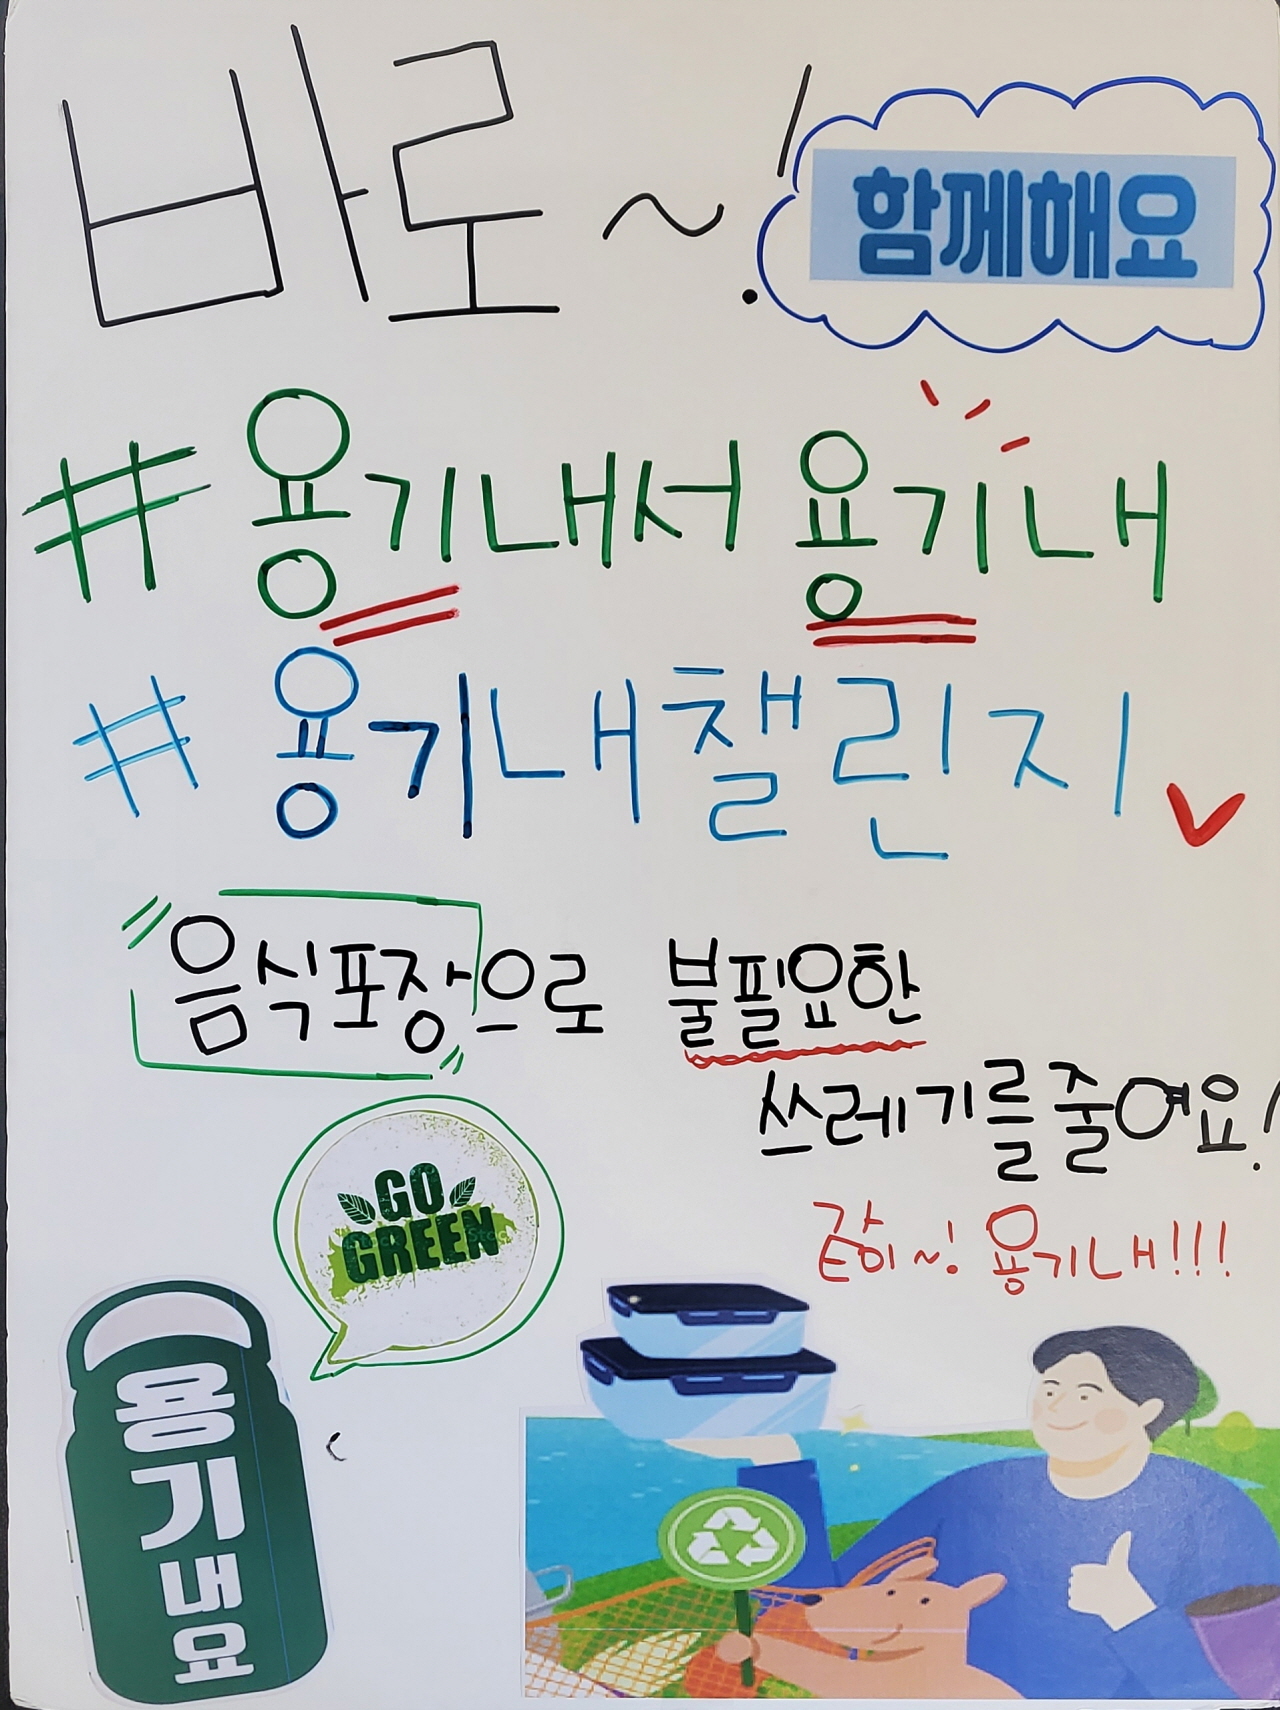 바로~!
함께해요
#용기내서 용기내
#용기내챌린지
음식포장으로 불필요한
쓰레기를줄여요!
GO
GREEN
용기내!!!
용기내요